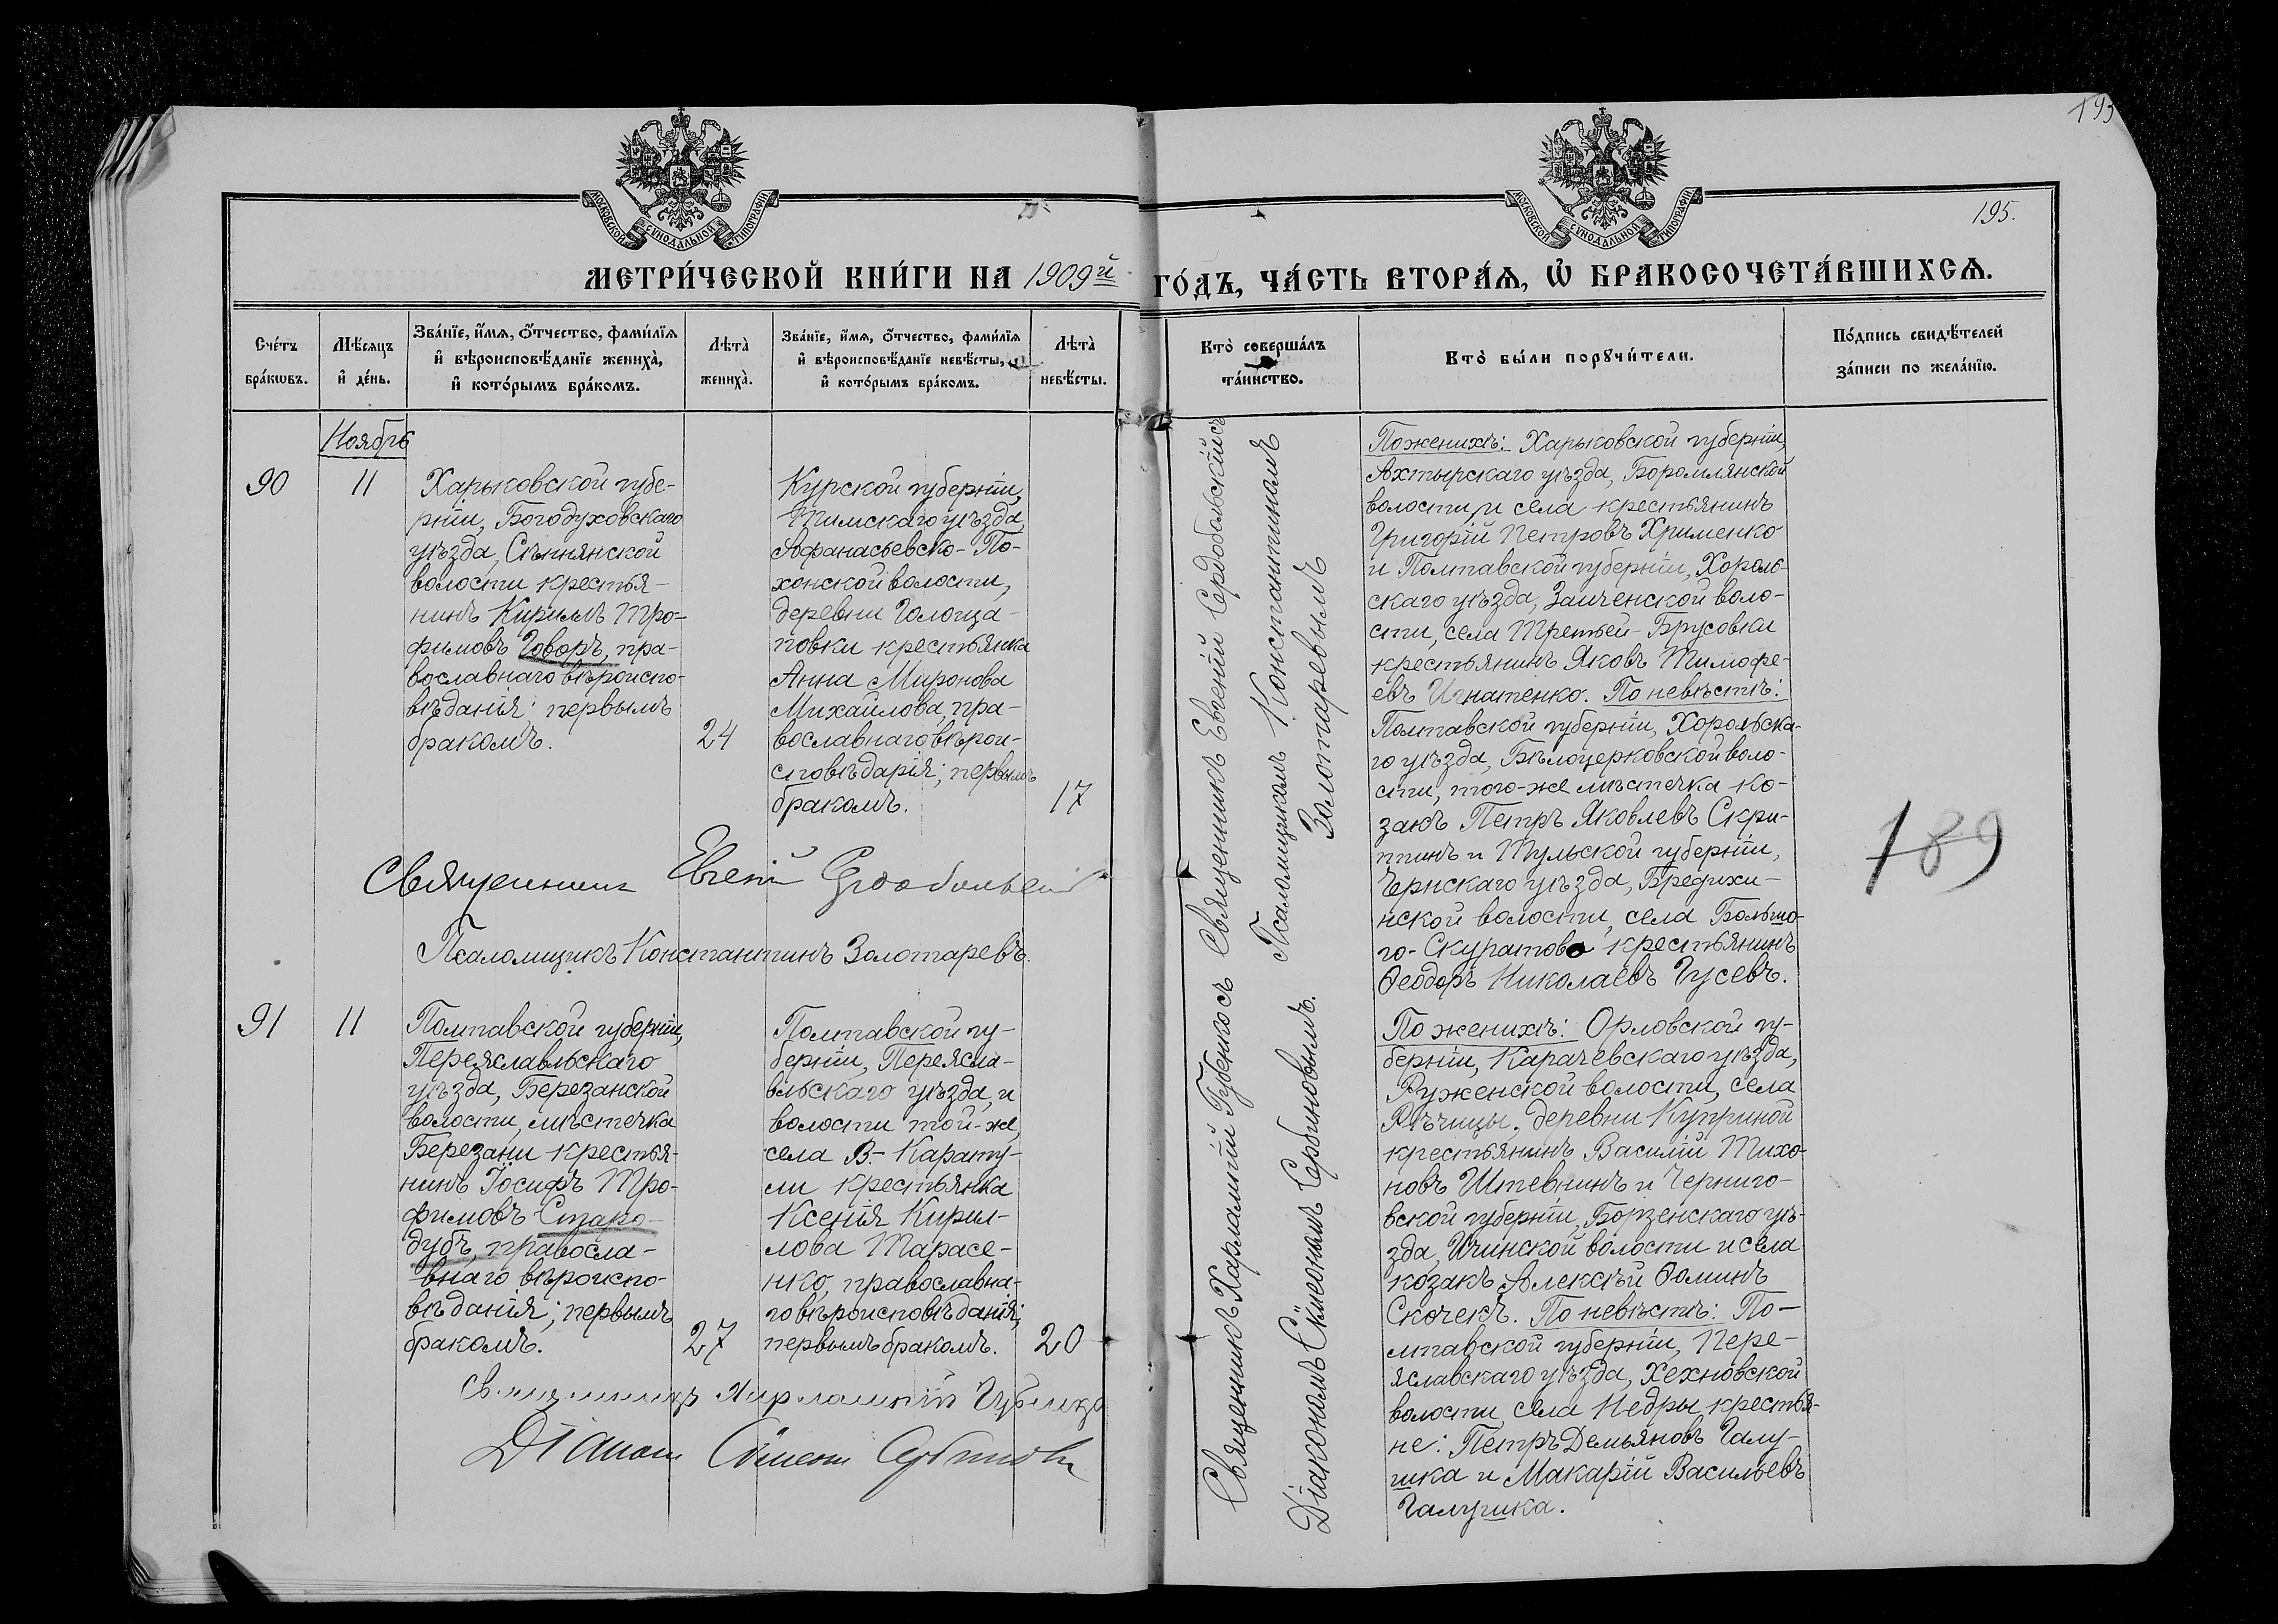 193
195.
МОСКОВСКОЙ СѴНОДАЛЬНОЙ ТИПОГРАФІИ
МОСКОВСКОЙ СѴНОДАЛЬНОЙ ТИПОГРАФІИ
МЕТРИ́ЧЕСКОЙ КНИ́ГИ НА 1909й ГО́ДЪ, ЧА́СТЬ ВТОРА́Ѧ, Ѡ҆ БРАКОСОЧЕТА́ВШИХСѦ.
Сче́тъ
бра́кѡвъ.
Мѣ́сѧцъ
и҆ де́нь.
Зва́нїе, и҆́мѧ, ѻ҆́тчество, фами́лїѧ
и҆ вѣроисповѣ́данїе жениха̀,
и҆ кото́рымъ бра́комъ.
Лѣ́та
жениха̀.
Зва́нїе, и҆́мѧ, ѻ҆́тчество, фами́лїѧ
и҆ вѣроисповѣ́данїе невѣ́сты,
и҆ кото́рымъ бра́комъ.
Лѣ́та
невѣ́сты.
Кто̀ соверша́лъ
та́инство.
Кто̀ бы́ли порꙋчи́тели.
По́дпись свидѣ́телей
за́писи по жела́нїю.
Ноябрь
90
11
Харьковской губе-
рніи, Богодуховскаго
уѣзда, Сѣннянской
волости крестья-
нинъ Кириллъ Тро-
фимовъ Говоръ, пра-
вославнаго вѣроиспо-
вѣданія; первымъ
бракомъ.
24
Курской губерніи,
Тимскаго уѣзда,
Афанасьевско-По-
хонской волости,
деревни Голоща-
повки крестьянка
Анна Миронова
Михайлова, пра-
вославнаго вѣрои-
сповѣданія; первымъ
бракомъ.
17
Священникъ Евгеній Сердобольскій
Псаломщикъ Константинъ Золотаревъ.
Священникъ Евгеній Сердобольскій съ
Псаломщикомъ Константиномъ
Золотаревымъ
По женихѣ: Харьковской губерніи,
Ахтырскаго уѣзда, Боромлянской
волости, и села крестьянинъ
Григорій Петровъ Хрименко
и Полтавской губерніи, Хороль-
скаго уѣзда, Заиченской воло-
сти, села Третьей-Брусовки
крестьянинъ Яковъ Тимофе-
евъ Игнатенко. По невѣстѣ:
Полтавской губерніи, Хорольска-
го уѣзда, Бѣлоцерковской воло-
сти, того-же мѣстечка ко-
закъ Петръ Яковлевъ Скри-
пинъ и Тульской губерніи,
Чернскаго уѣзда, Бредихи-
нской волости, села Большо-
го-Скуратово крестьянинъ
Ѳеодоръ Николаевъ Гусевъ.
189
91
11
Полтавской губерніи,
Переяславльскаго
уѣзда, Березанской
волости, мѣстечка
Березани крестья-
нинъ Іосифъ Тро-
фимовъ Старо-
дубъ, правосла-
внаго вѣроиспо-
вѣданія; первымъ
бракомъ.
27
Полтавской гу-
берніи, Переясла-
вльскаго уѣзда, и
волости той-же,
села В.-Карату-
ли крестьянка
Ксенія Кирил-
лова Тарасе-
нко, православна-
го вѣроисповѣданія;
первымъ бракомъ.
20
Священникъ Харлампій Губенко
Діаконъ Сѵмеонъ Сербиновъ
Священникъ Харлампій Губенко съ
Діакономъ Сѵмеономъ Сербиновымъ.
По женихѣ: Орловской гу-
берніи, Карачевскаго уѣзда,
Руженской волости, села
Рѣчицы, деревни Куприной
крестьянинъ Василій Тихо-
новъ Штевнинъ и Черниго-
вской губерніи, Борзенскаго уѣ-
зда, Ичинской волости и села
козакъ Алексѣй Ѳоминъ
Скочекъ. По невѣстѣ: По-
лтавской губерніи, Пере-
яславскаго уѣзда, Хехновской
волости, села Недры, крестья-
не: Петръ Демьяновъ Галу-
шка и Макарій Васильевъ
Галушка.